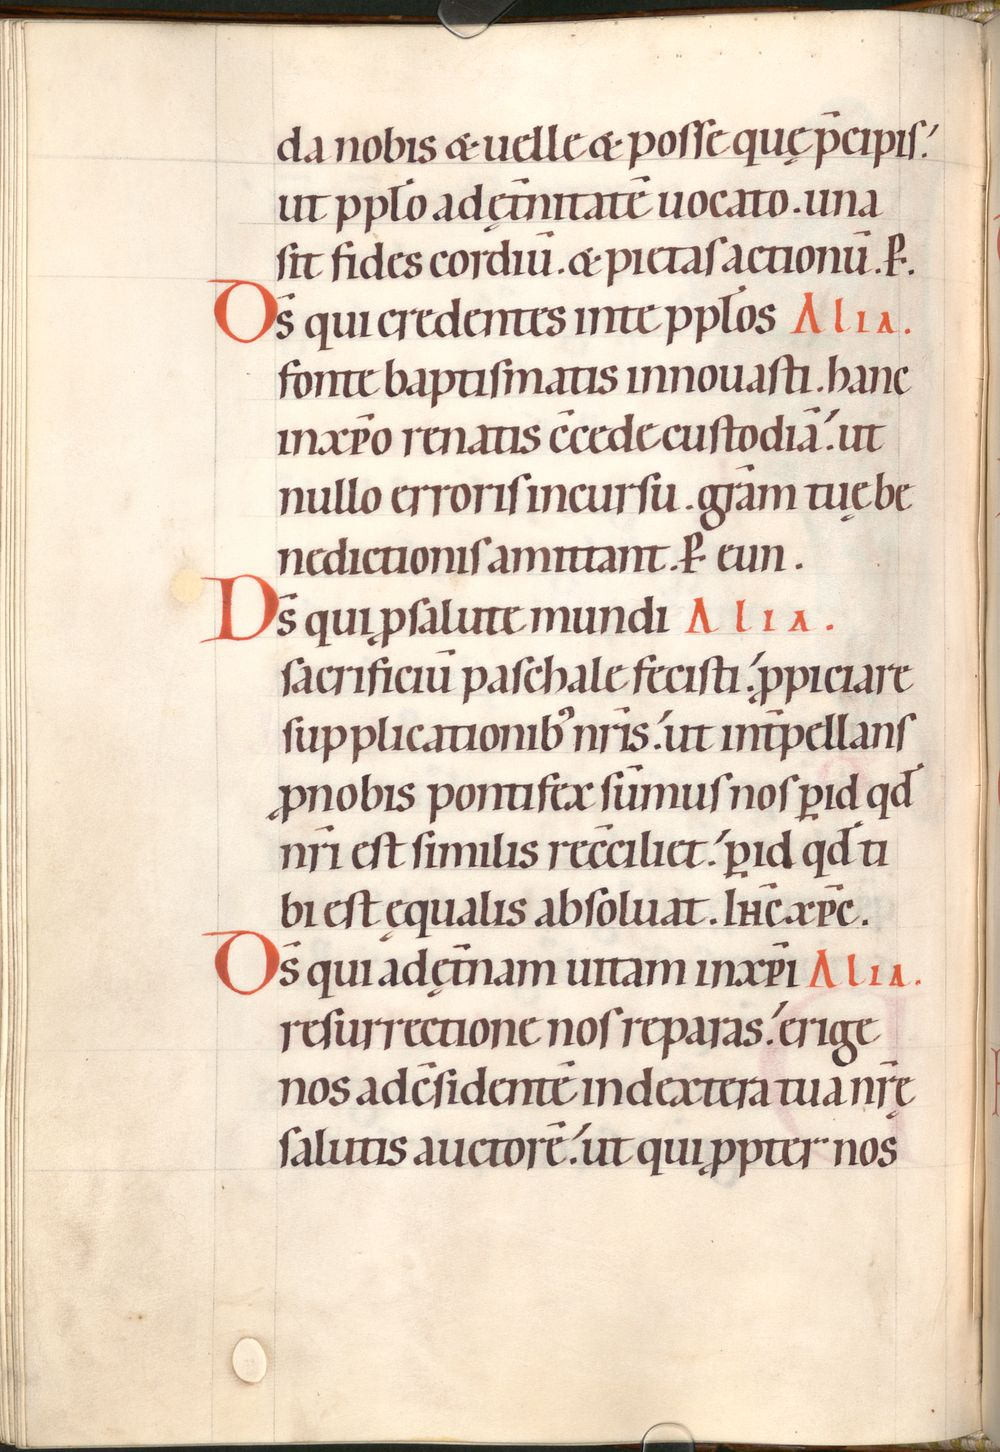 da nobis & uelle & posse quę p̄cipis.'
ut ppl̄o ad ęt̄nitatē uocato. una
sit fides cordiū. & pietas actionū. P̄.
Ds̄ qui credentes in te ppl̄os Alia.
fonte baptismatis innouasti. hanc
in xp̄o renatis c̄cede custodiā.' ut
nullo erroris incursu. gr̄am tuę be
nedictionis amittant. P̄ eun.
Ds̄ qui ꝓ salute mundi Alia.
sacrificiū paschale fecisti.' ꝓpiciare
supplicationibꝰ nr̄is.' ut int̄pellans
ꝓ nobis pontifex sūmus nos ꝑ id qd̄
nr̄i est similis rec̄ciliet.' ꝑ id qd̄ ti
bi est ęqualis absoluat. Ihc̄ xp̄c.
Ds̄ qui ad ęt̄nam uitam in xp̄i Alia.
resurrectione nos reparas.' erige
nos ad c̄sidentē in dextera tua nr̄ę
salutis auctorē.' ut qui ꝓpter nos